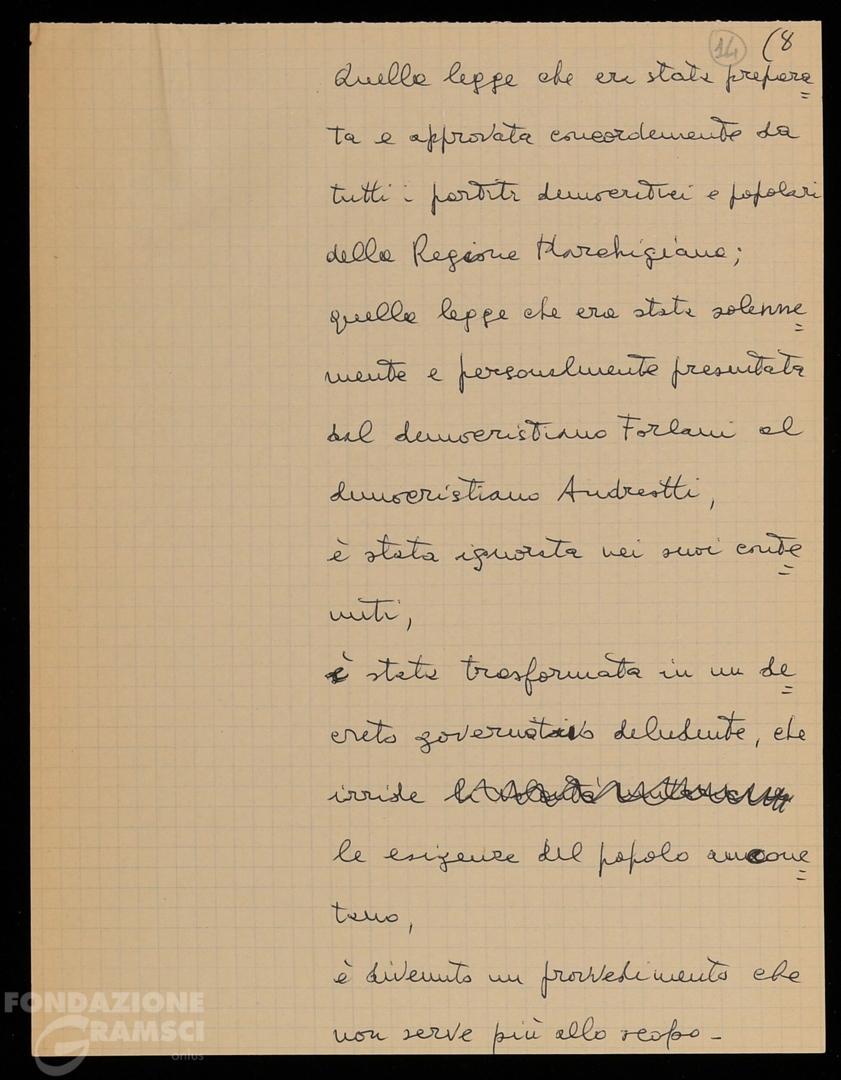 14 (8
Quella legge che era stata prepara=
ta e approvata concordemente da
tutti i partiti democratici e popolari
della Regione Marchigiana;
quella legge che era stata solenne=
mente e personalmente presentata
dal democristiano Forlani al
democristiano Andreotti,
è stata ignorata nei suoi conte=
nuti,
è stata trasformata in un de=
creto governativo deludente, che
irride
le esigenze del popolo ancone=
tano,
è divenuto un provvedimento che
non serve più allo scopo -
FONDAZIONE
GRAMSCI
onlus